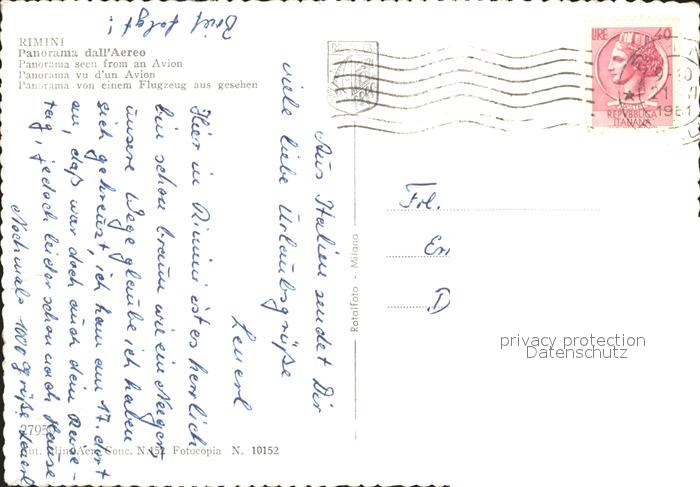 RIMINI
Panorama dall'Aereo
Panorama seen from an Avion
Panorama vu d'un Avion
Panorama von einem Flugzeug aus gesehen
Brief folgt!
Aus Italien sendet Dir
viele liebe Urlaubsgrüße
Leuerl
Hier in Rimini ist es herrlich
bin schon braun wie ein Neger,
unsere Wege glaube ich haben
sich gekreuzt, ich kam am 17. dort
an, daß war doch auch dein Reise-
tag, jedoch leider schon nach Hause
Nochmals 1000 Grüße Leuerl
Frl.
Er
D
LIRE 40
REPVBBLICA
ITALIANA
21
1961
Rotalfoto - Milano
2795
Aut. Min. Aer. Conc. N. 152 Fotocopia N. 10152
privacy protection
Datenschutz